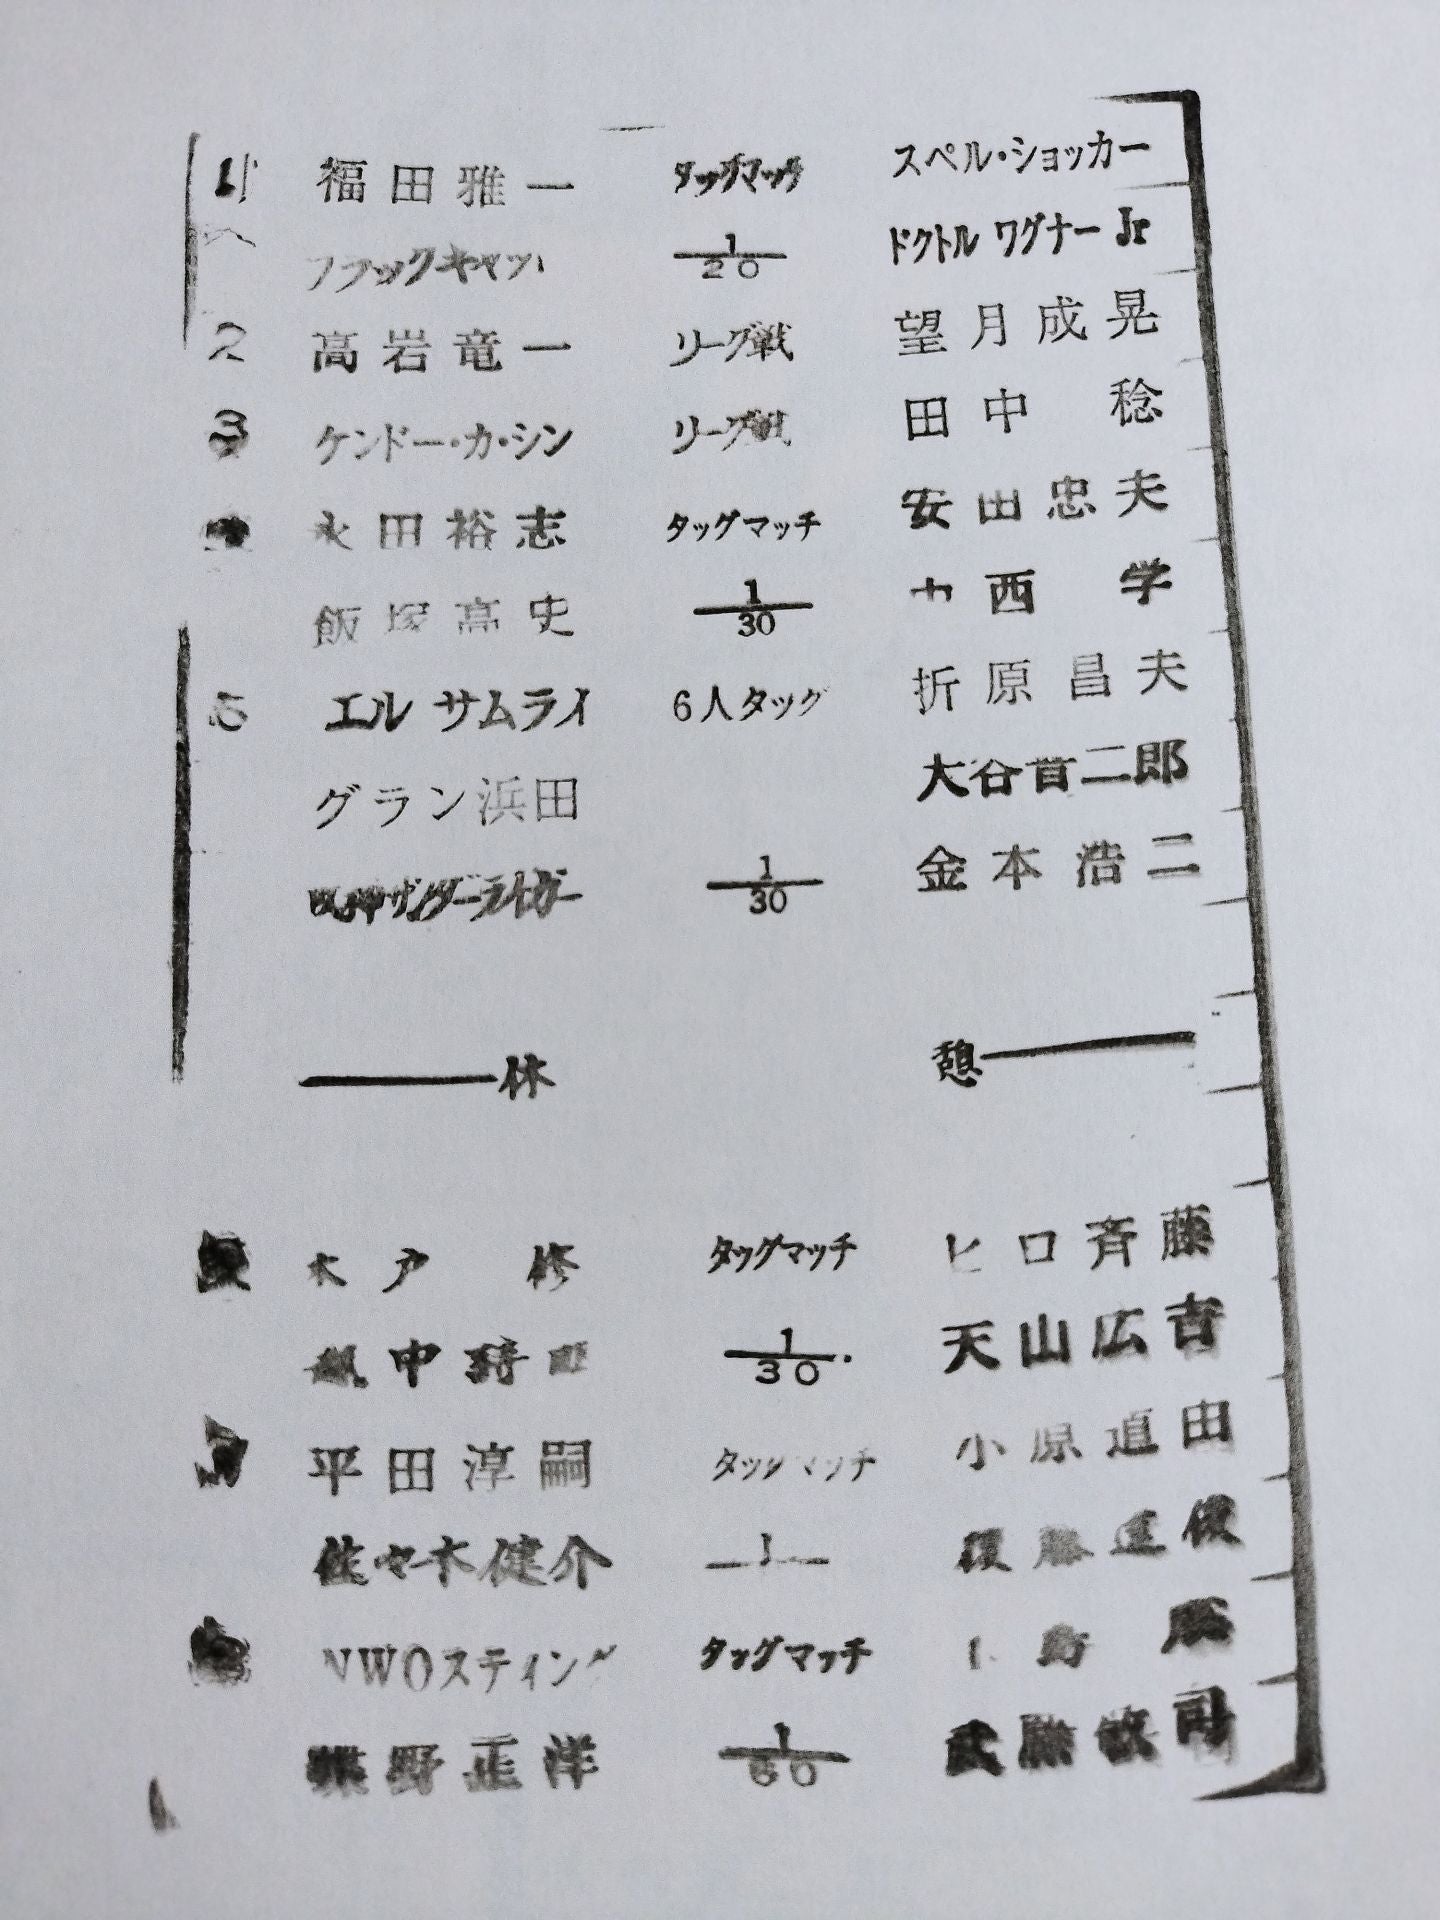 1 福田雅一 タッグマッチ スペル・ショッカー
ブラックキャット 1/20 ドクトル ワグナー Jr
2 高岩竜一 リーグ戦 望月成晃
3 ケンドー・カ・シン リーグ戦 田中 稔
永田裕志 タッグマッチ 安田忠夫
飯塚高史 1/30 中西 学
5 エル サムライ 6人タッグ 折原昌夫
グラン浜田 大谷晋二郎
獣神サンダーライガー 1/30 金本浩二
休 憩
木戸 修 タッグマッチ ヒロ斉藤
越中詩郎 1/30 天山広吉
平田淳嗣 タッグマッチ 小原道由
佐々木健介 1 後藤達俊
NWOスティング タッグマッチ
蝶野正洋 1/60 武藤敬司